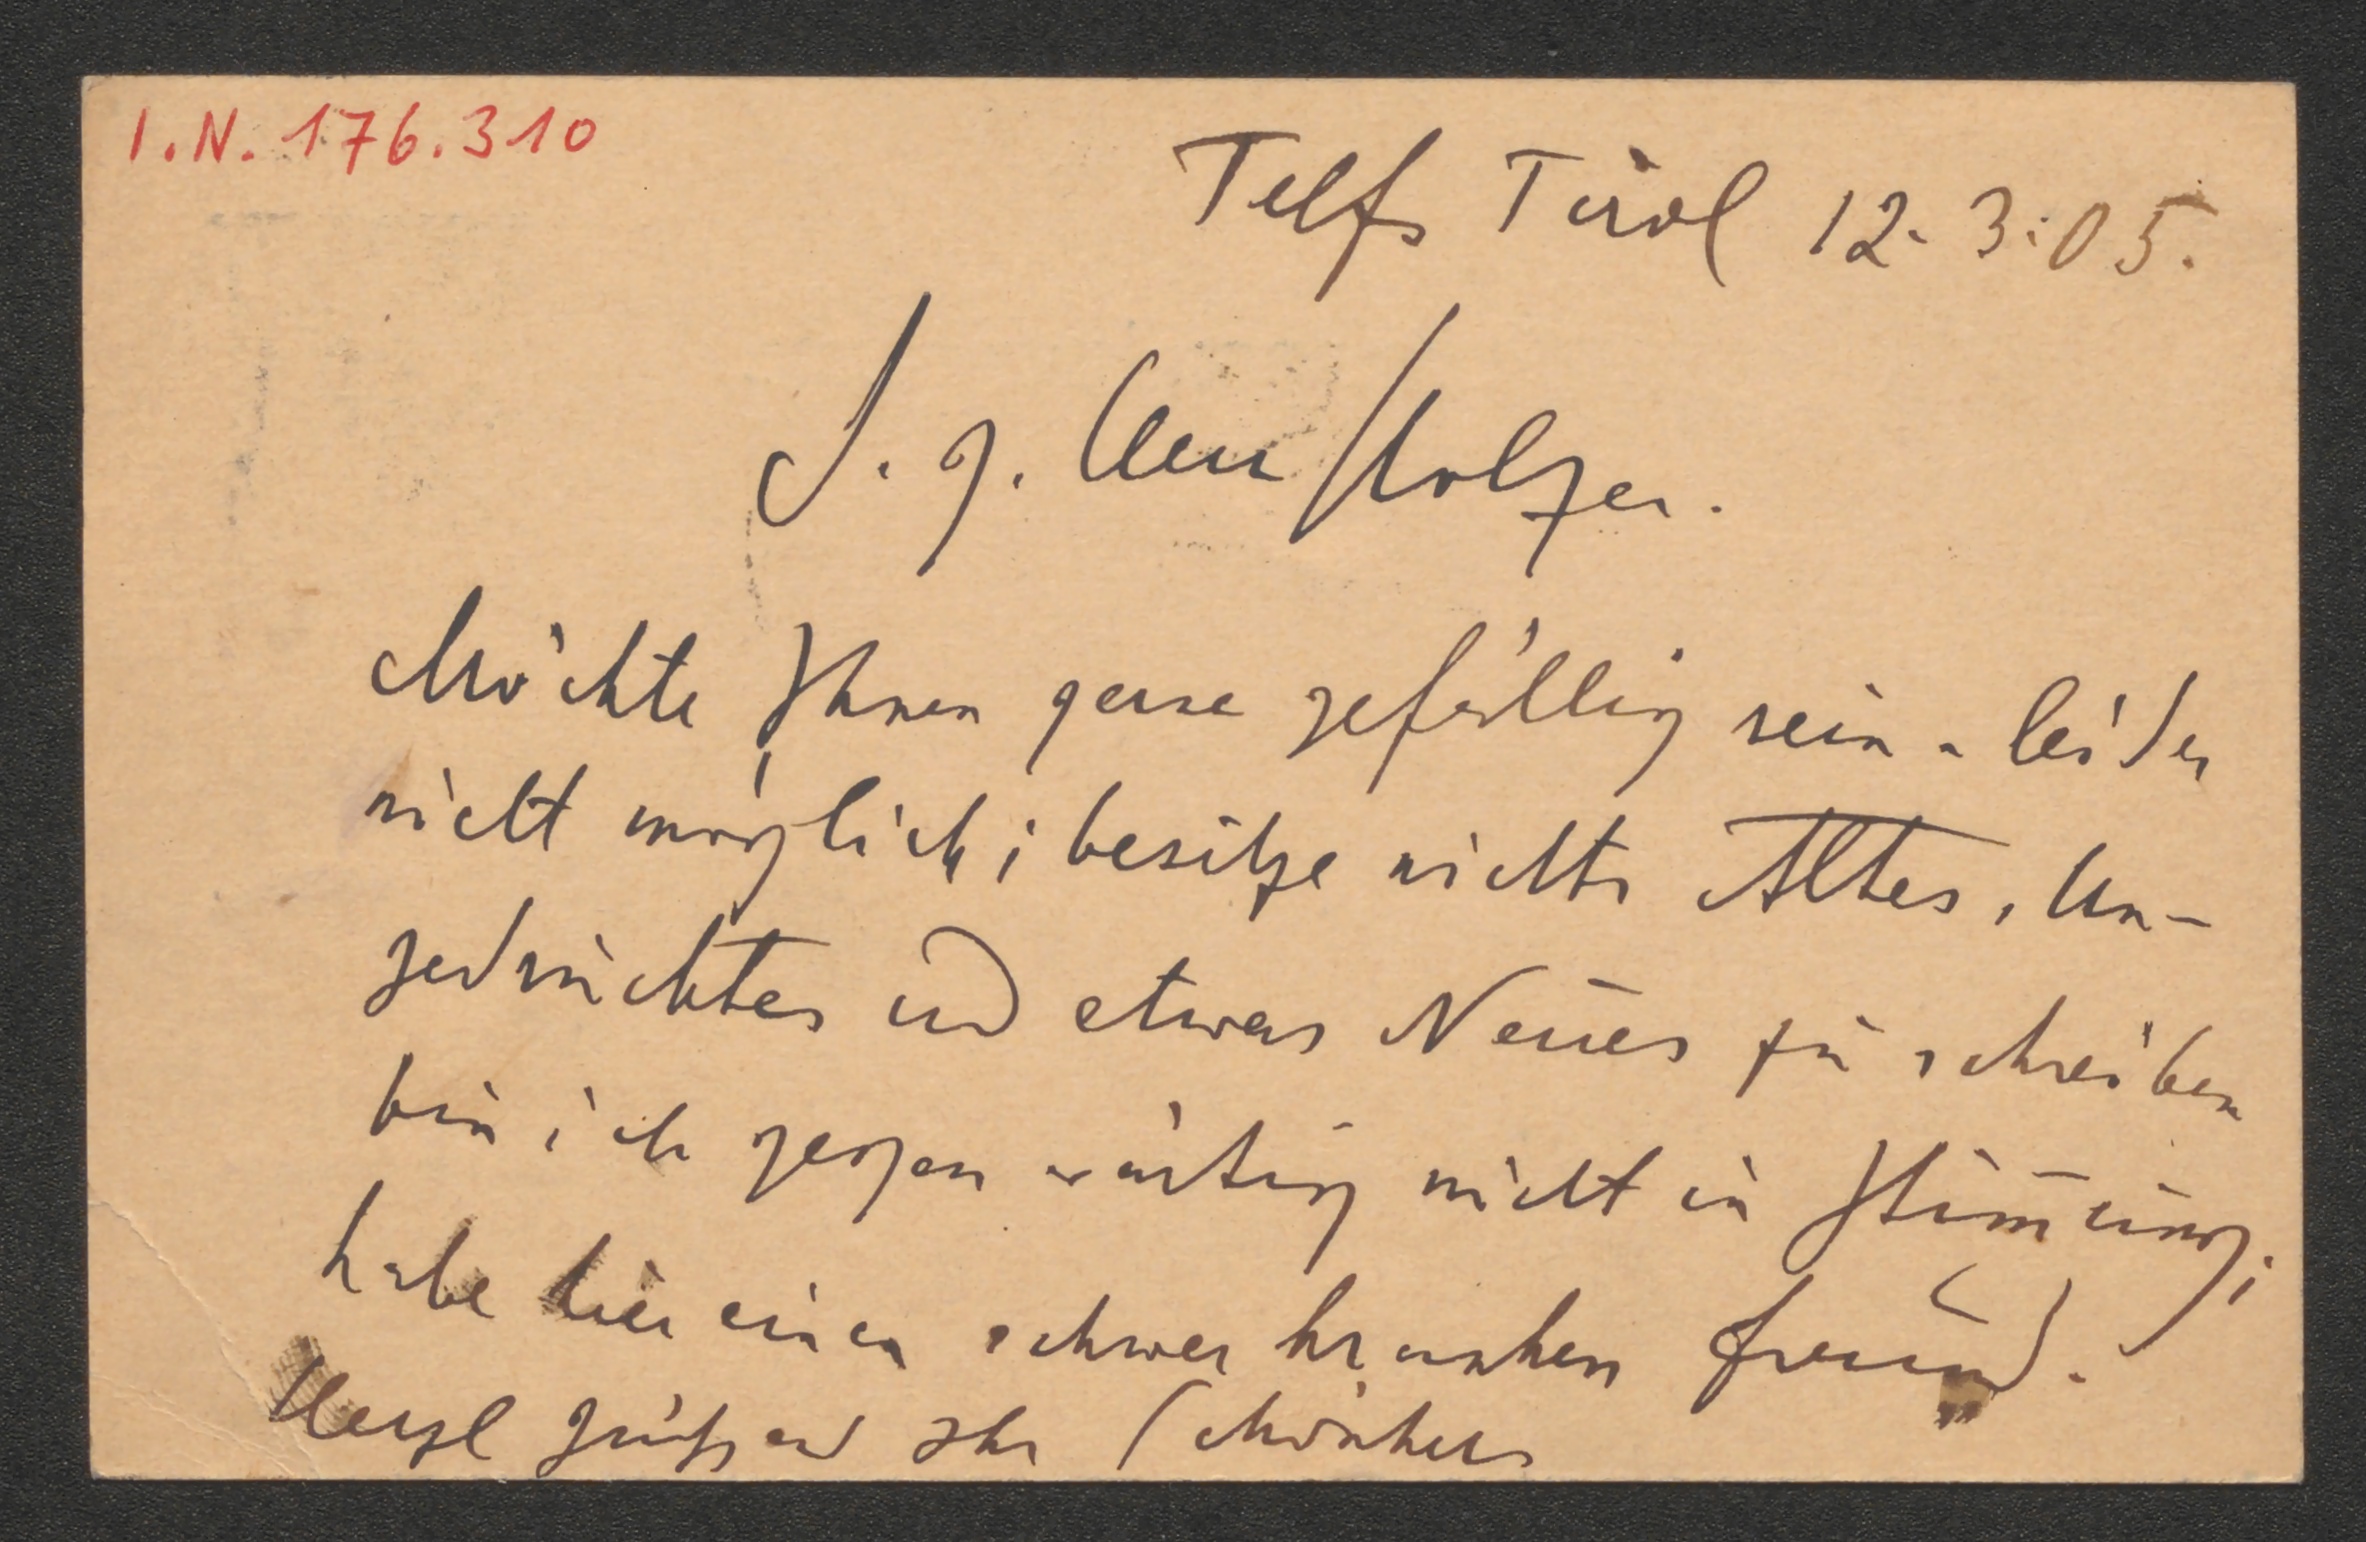 I.N. 176.310
Telfs Tirol 12. 3. 05.
S. g. Herr Holzer.
Möchte Ihnen gerne gefällig sein - leider
nicht möglich; besitze nichts Altes, Un-
gedrucktes und etwas Neues zu schreiben
bin ich gegenwärtig nicht in Stimmung;
habe hier einen schwer kranken Freund.
Herzl grüßend Ihr